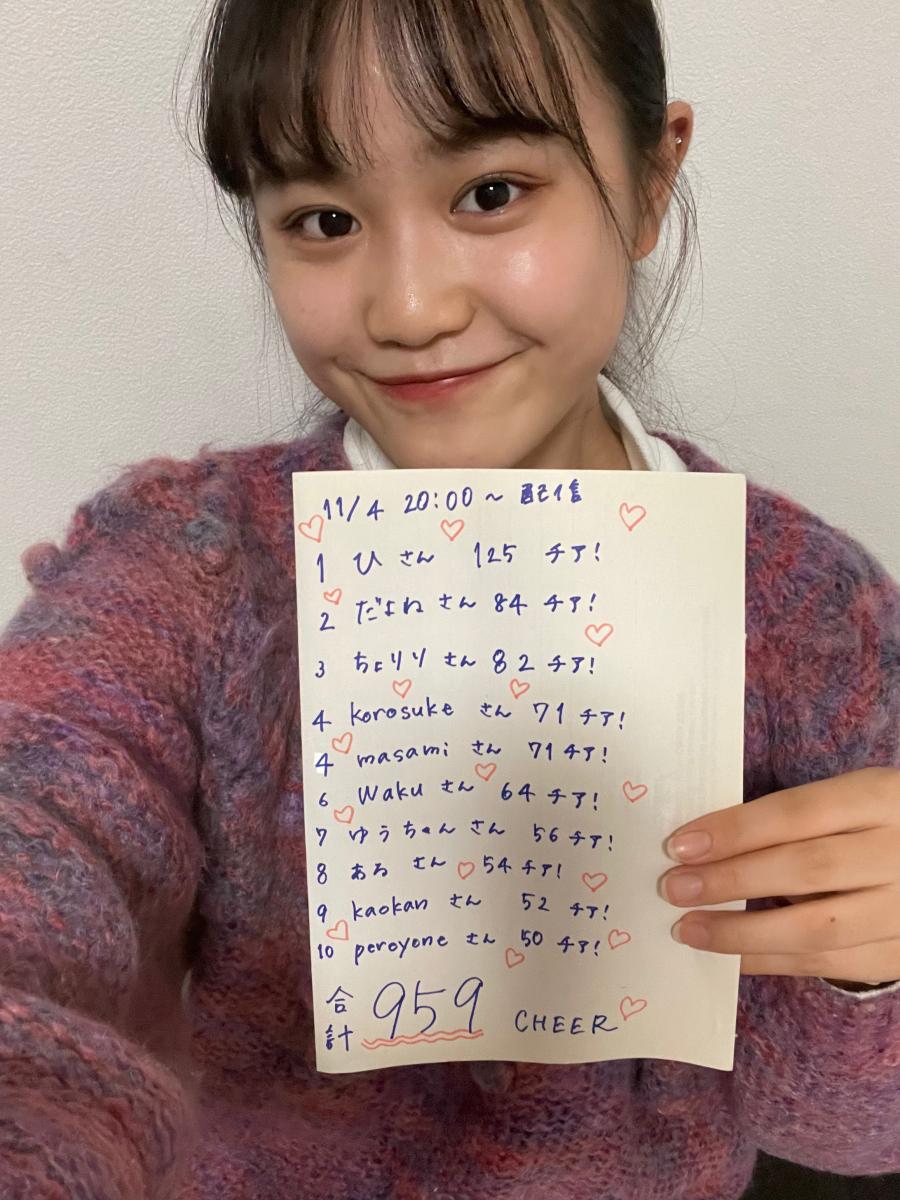 11/4 20:00〜 配信
1 ひ さん 125 チア!
2 だよね さん 84 チア!
3 ちょりり さん 82 チア!
4 korosuke さん 71 チア!
4 masami さん 71 チア!
6 Waku さん 64 チア!
7 ゆうちゃん さん 56 チア!
8 ある さん 54 チア!
9 kaokan さん 52 チア!
10 peroyone さん 50 チア!
合計 959 CHEER